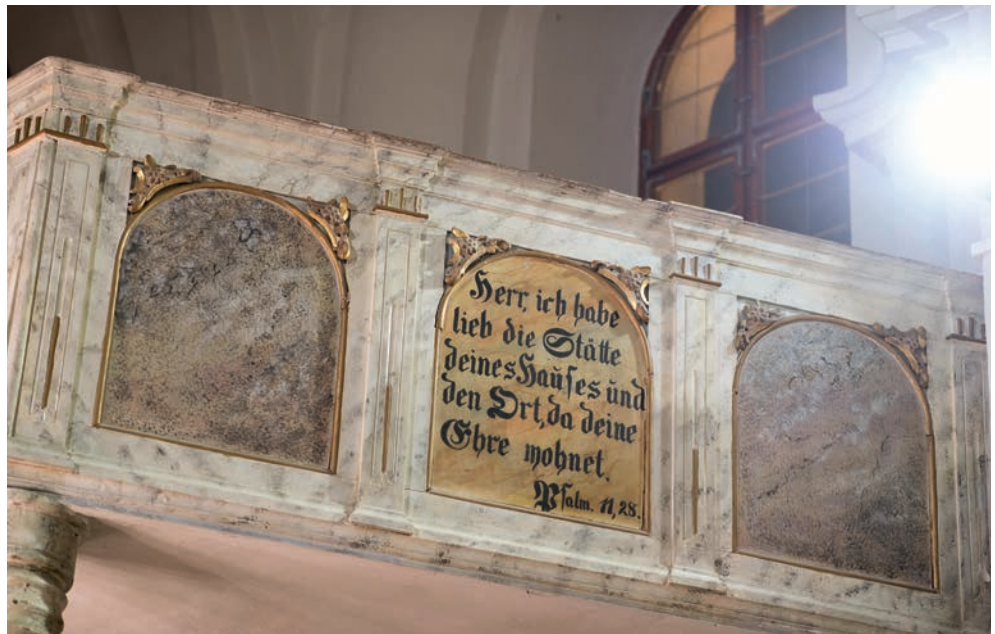 Herr, ich habe
lieb die Stätte
deines Hauses und
den Ort, da deine
Ehre wohnet.
Psalm. 11, 28.